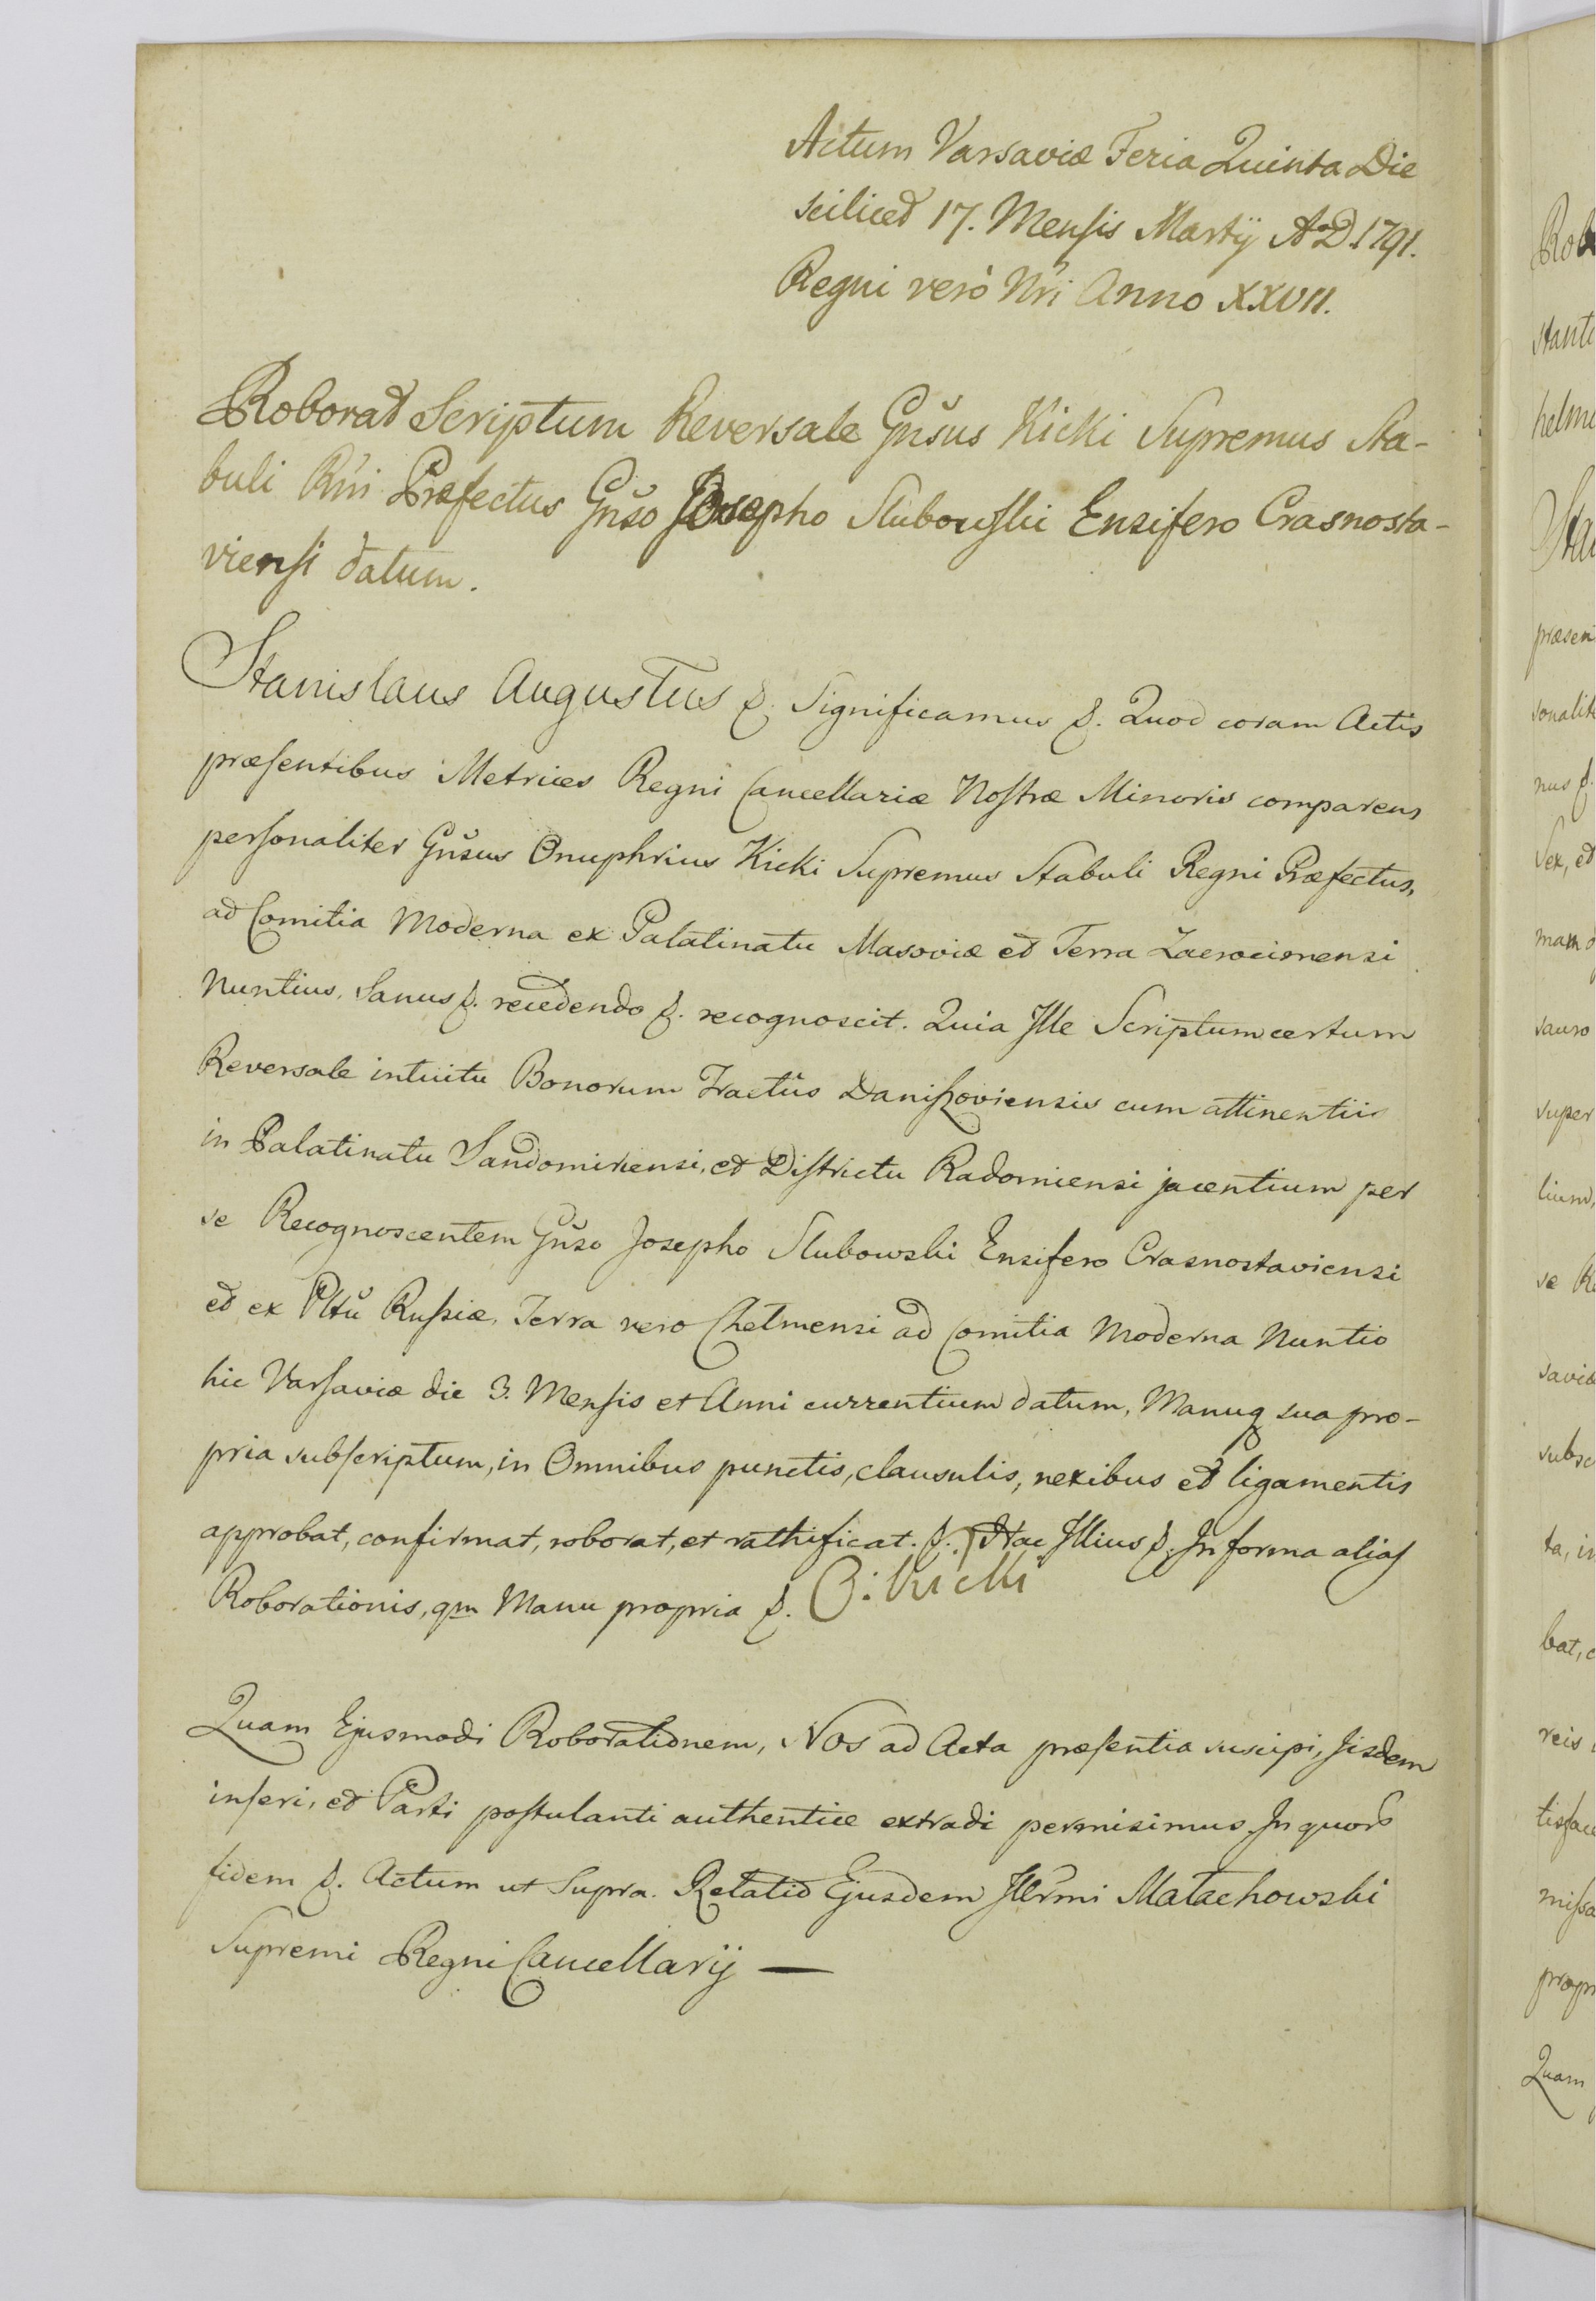 Actum Varsaviæ Feria Quinta Die
scilicet 17. Mensis Martij A.D. 1791.
Regni verò Nri Anno XXVII.
Roborat Scriptum Reversale Gnsus Kicki Supremus Sta-
buli Rni Præfectus Gnso Josepho Stubowski Ensifero Crasnosta-
viensi datum.
Stanislaus Augustus &. Significamus &. Quod coram Actis
præsentibus Metrices Regni Cancellariæ Nostræ Minoris comparens
personaliter Gnsus Onuphrius Kicki Supremus Stabuli Regni Præfectus,
ad Comitia Moderna ex Palatinatu Masoviæ et Terra Zacrocimensi
Nuntius, Sanus &. recedendo &. recognoscit. Quia Ille Scriptum certum
Reversale intuitu Bonorum Tractûs Daniszoviensis cum attinentiis
in Palatinatu Sandomiriensi, et Districtu Radomiensi jacentium per
se Recognoscentem Gnso Josepho Stubowski Ensifero Crasnostaviensi
et ex Pltu Russiæ, Terra vero Chelmensi ad Comitia Moderna Nuntio
hic Varsaviæ die 3. Mensis et Anni currentium datum, Manuq sua pro-
pria subscriptum, in Omnibus punctis, clausulis, nexibus et ligamentis
approbat, confirmat, roborat, et rathificat. &. Hac Illius &. In forma alias
Roborationis, qm Manu propria &. O: Kicki
Quam Ejusmodi Roborationem, Nos ad Acta præsentia suscipi, Iisdem
inseri, et Parti postulanti authentice extradi permisimus. In quorum
fidem &. Actum ut Supra. Relatio Ejusdem Illrmi Małachowski
Supremi Regni Cancellarij —